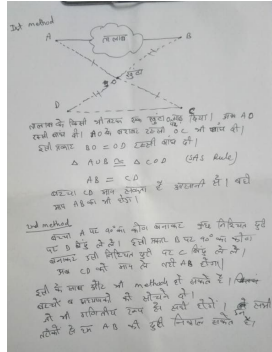 Ist method
A
तालाब
B
खूंटा
O
D
C
तालाब के किसी भी तरफ एक खूंटा गाड़ दिया। अब AO
रस्सी बांध दी। AO के बराबर रस्सी OC भी बांध दी।
इसी प्रकार BO = OD रस्सी बांध दी।
△ AOB ≅ △ COD (SAS Rule)
AB = CD
बच्चा CD माप सकता है आसानी से। वही
माप AB की भी होगी।
2nd method
बच्चा A पर 90° का कोण बनाकर कुछ निश्चित दूरी
पर D बिंदु ले ले। इसी प्रकार B पर 90° का कोण
बनाकर उसी निश्चित दूरी पर C बिंदु ले ले।
अब CD को माप ले वही AB होगा।
इसी के साथ और भी methods हो सकते हैं।
बच्चों व अध्यापकों को सोचने दो।
जो भी गणितीय तथ्य है। सही होगा।
तरीकों से हम AB की दूरी निकाल सकते हैं।